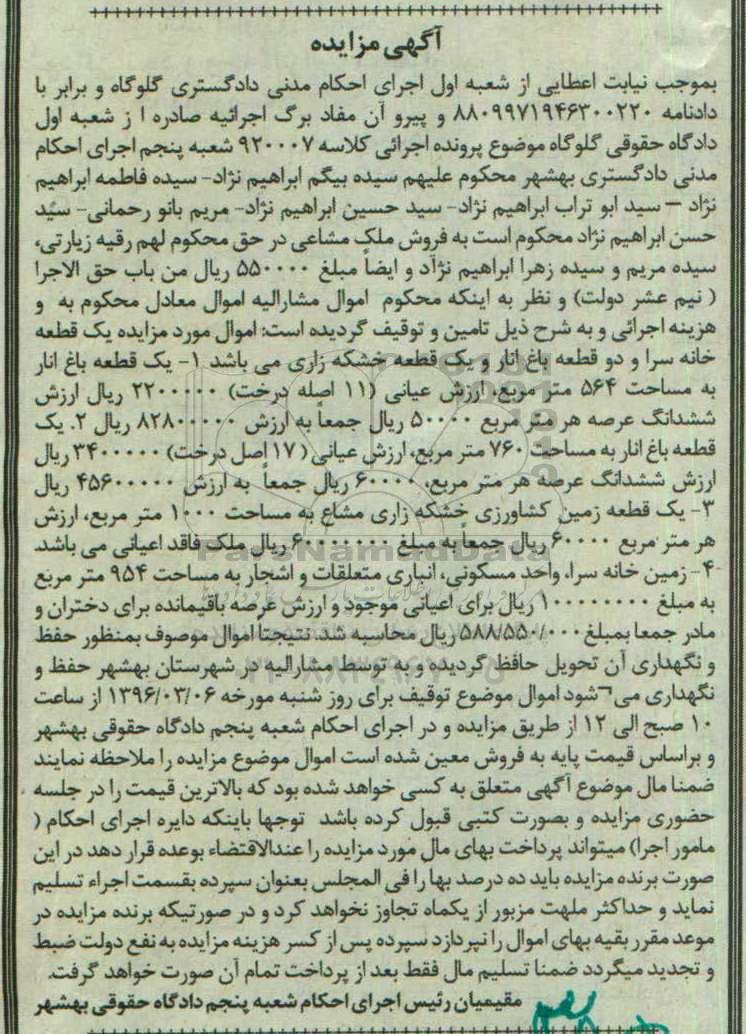 آگهی مزایده
بموجب نیابت اعطایی از شعبه اول اجرای احکام مدنی دادگستری گلوگاه و برابر با
دادنامه ۸۸۰۹۹۷۱۹۴۶۳۰۰۲۲۰ و پیرو آن مفاد برگ اجرائیه صادره ا ز شعبه اول
دادگاه حقوقی گلوگاه موضوع پرونده اجرائی کلاسه ۹۲۰۰۰۷ شعبه پنجم اجرای احکام
مدنی دادگستری بهشهر محکوم علیهم سیده بیگم ابراهیم نژاد- سیده فاطمه ابراهیم
نژاد – سید ابو تراب ابراهیم نژاد- سید حسین ابراهیم نژاد- مریم بانو رحمانی- سید
حسن ابراهیم نژاد محکوم است به فروش ملک مشاعی در حق محکوم لهم رقیه زیارتی،
سیده مریم و سیده زهرا ابراهیم نژاد و ایضاً مبلغ ۵۵۰۰۰۰ ریال من باب حق الاجرا
( نیم عشر دولت) و نظر به اینکه محکوم اموال مشارالیه اموال معادل محکوم به و
هزینه اجرائی و به شرح ذیل تامین و توقیف گردیده است: اموال مورد مزایده یک قطعه
خانه سرا و دو قطعه باغ انار و یک قطعه خشکه زاری می باشد ۱- یک قطعه باغ انار
به مساحت ۵۶۴ متر مربع، ارزش عیانی (۱۱ اصله درخت) ۲۲۰۰۰۰۰ ریال ارزش
ششدانگ عرصه هر متر مربع ۵۰۰۰۰ ریال جمعاً به ارزش ۸۲۸۰۰۰۰۰ ریال ۲. یک
قطعه باغ انار به مساحت ۷۶۰ متر مربع، ارزش عیانی( ۱۷ اصل درخت) ۳۴۰۰۰۰۰ ریال
ارزش ششدانگ عرصه هر متر مربع، ۶۰۰۰۰ ریال جمعاً به ارزش ۴۵۶۰۰۰۰۰ ریال
۳- یک قطعه زمین کشاورزی خشکه زاری مشاع به مساحت ۱۰۰۰ متر مربع، ارزش
هر متر مربع ۶۰۰۰۰ ریال جمعاً به مبلغ ۶۰۰۰۰۰۰۰ ریال ملک فاقد اعیانی می باشد.
۴- زمین خانه سرا، واحد مسکونی، انباری متعلقات و اشجار به مساحت ۹۵۴ متر مربع
به مبلغ ۱۰۰۰۰۰۰۰۰ ریال برای اعیانی موجود و ارزش عرصه باقیمانده برای دختران و
مادر جمعا بمبلغ ۵۸۸/۵۵۰/۰۰۰ ریال محاسبه شد. نتیجتاً اموال موصوف بمنظور حفظ
و نگهداری آن تحویل حافظ گردیده و به توسط مشارالیه در شهرستان بهشهر حفظ و
نگهداری می¬شود اموال موضوع توقیف برای روز شنبه مورخه ۱۳۹۶/۰۳/۰۶ از ساعت
۱۰ صبح الی ۱۲ از طریق مزایده و در اجرای احکام شعبه پنجم دادگاه حقوقی بهشهر
و براساس قیمت پایه به فروش معین شده است اموال موضوع مزایده را ملاحظه نمایند
ضمنا مال موضوع آگهی متعلق به کسی خواهد شده بود که بالاترین قیمت را در جلسه
حضوری مزایده و بصورت کتبی قبول کرده باشد توجها باینکه دایره اجرای احکام (
مامور اجرا) میتواند پرداخت بهای مال مورد مزایده را عندالاقتضاء بوعده قرار دهد در این
صورت برنده مزایده باید ده درصد بها را فی المجلس بعنوان سپرده بقسمت اجراء تسلیم
نماید و حداکثر ملهت مزبور از یکماه تجاوز نخواهد کرد و در صورتیکه برنده مزایده در
موعد مقرر بقیه بهای اموال را نپردازد سپرده پس از کسر هزینه مزایده به نفع دولت ضبط
و تجدید میگردد ضمنا تسلیم مال فقط بعد از پرداخت تمام آن صورت خواهد گرفت.
مقیمیان رئیس اجرای احکام شعبه پنجم دادگاه حقوقی بهشهر